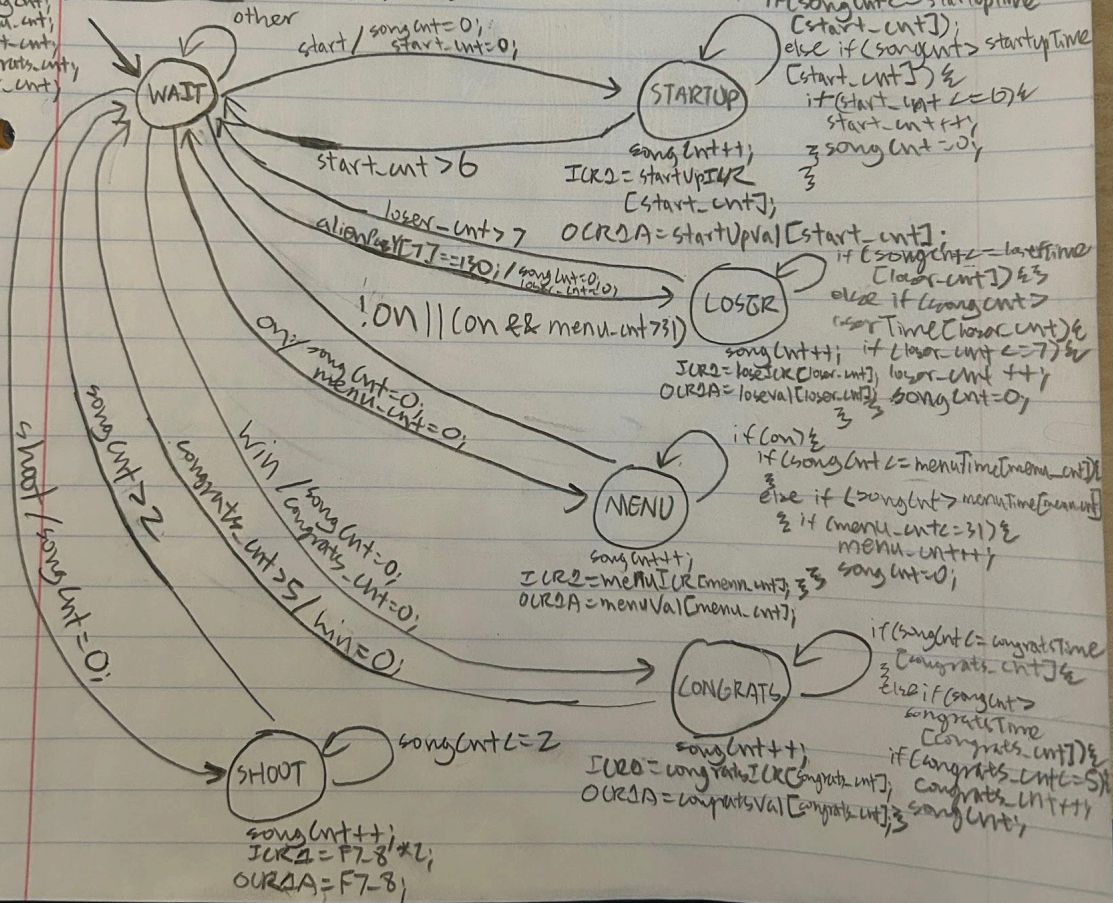 u_cnt;
t_cnt;
rats_cnt;
_cnt)
other
start / songCnt=0;
start_cnt=0;
WAIT
STARTUP
start_cnt>6
songCnt++;
ICR1=startUpICR
[start_cnt];
OCR1A=startUpVal[start_cnt];
[start_cnt]);
else if(songCnt> startupTime
[start_cnt]){
if(start_cnt <=6){
start_cnt++;
} songCnt=0;
}
loser_cnt>7
[7]==130; / songCnt=0;
loser_cnt=0;
LOSER
if(songCnt<=loserTime
[loser_cnt]){}
else if(songCnt>
loserTime[loser_cnt]{
if (loser_cnt <=7){
loser_cnt ++;
songCnt=0;
} }
songCnt++;
ICR1=loseICR[loser_cnt];
OCR1A=loseVal[loser_cnt];
!on||(on && menu_cnt>31)
on; / songCnt=0;
menu_cnt=0;
MENU
if(on){
if(songCnt<=menuTime[menu_cnt]){
}
else if (songCnt>menuTime[menu_cnt]
{ if (menu_cnt<=31){
menu_cnt++;
songCnt=0;
}}
songCnt++;
ICR1=menuICR[menu_cnt];
OCR1A=menuVal[menu_cnt];
win / songCnt=0;
congrats_cnt=0;
congrats_cnt>5 / win=0;
CONGRATS
if(songCnt<=congratsTime
[congrats_cnt]{
}
else if(songCnt>
congratsTime
[congrats_cnt]){
if(congrats_cnt<=5){
congrats_cnt++;
songCnt;
songCnt++;
ICR1=congratsICR[congrats_cnt];
OCR1A=congratsVal[congrats_cnt];}
songCnt>2
shoot / songCnt=0;
SHOOT
songCnt<=2
songCnt++;
ICR1=F7_8*2;
OCR1A=F7_8;